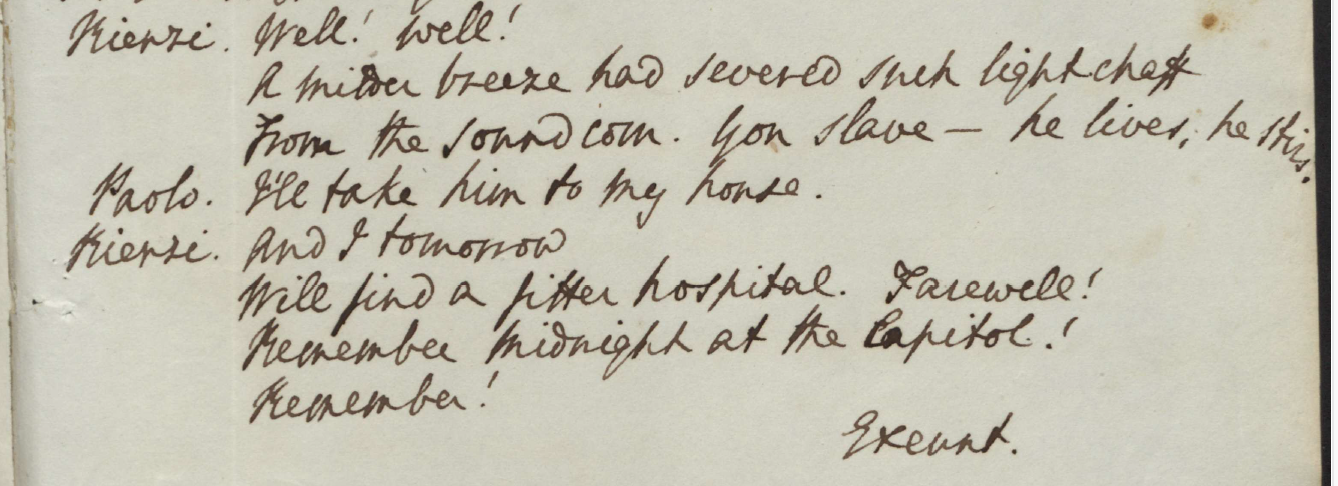 Rienzi. Well! well!
A milder breeze had severed such light chaff
From the sound corn. Yon slave — he lives, he stirs.
Paolo. I'll take him to my house.
Rienzi. And I tomorrow
Will find a fitter hospital. Farewell!
Remember midnight at the Capitol!
Remember!
Exeunt.